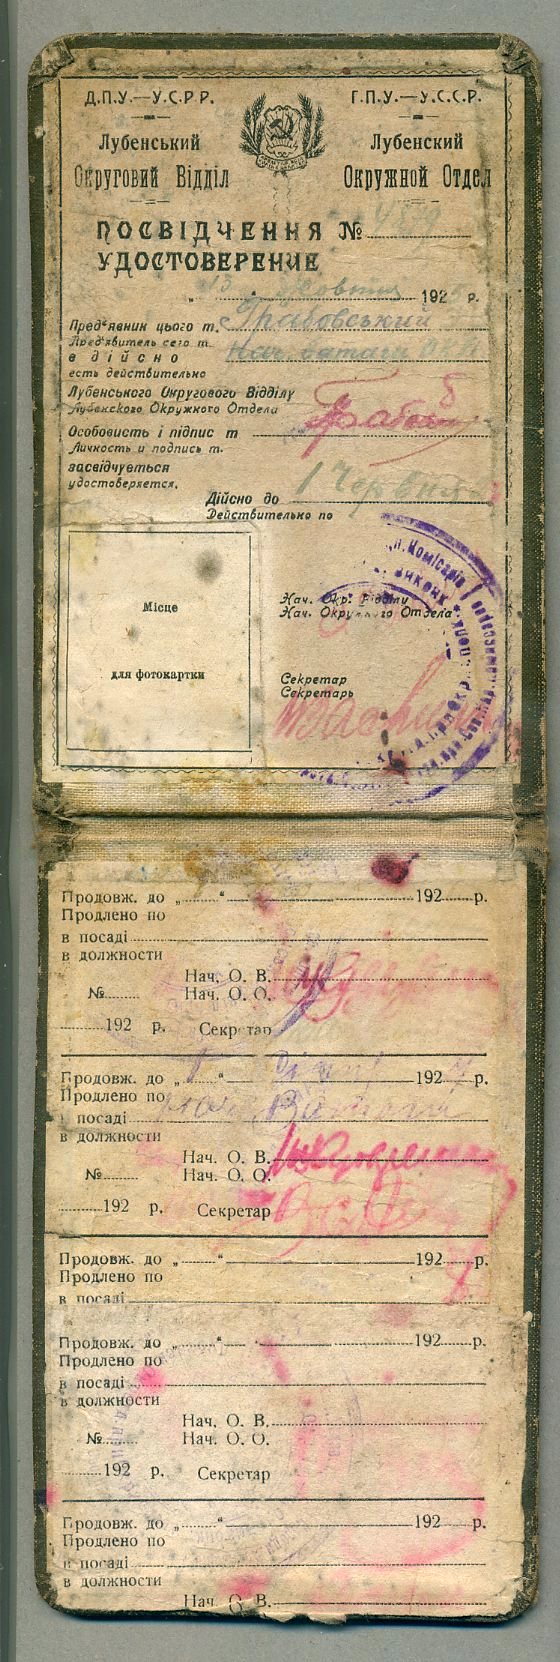 Д.П.У.—У.С.Р.Р. Г.П.У.—У.С.С.Р.
Лубенський Лубенский
Округовий Відділ Окружной Отдел
ПОСВІДЧЕННЯ №
УДОСТОВЕРЕНИЕ
„ 15 “ Жовтня 192 р.
Пред'явник цього т. Грабовський
Пред'явитель сего т.
є дійсно
есть действительно
Лубенського Округового Відділу
Лубенского Окружного Отдела
Особовисть і підпис т
Личность и подпись т.
засвідчується
удостоверяется.
Дійсно до 1 Червня
Действительно по
Місце
для фотокартки
Нач. Окр. Відділу
Нач. Окружного Отдела
Секретар
Секретарь
Продовж. до „ “ 192 р.
Продлено по
в посаді
в должности
Нач. О. В.
№ Нач. О. О.
192 р. Секретар
Продовж. до „ “ 192 р.
Продлено по
в посаді
в должности
Нач. О. В.
№ Нач. О. О.
192 р. Секретар
Продовж. до „ “ 192 р.
Продлено по
в посаді
Продовж. до „ “ 192 р.
Продлено по
в посаді
в должности
Нач. О. В.
№ Нач. О. О.
192 р. Секретар
Продовж. до „ “ 192 р.
Продлено по
в посаді
в должности
Нач. О. В.